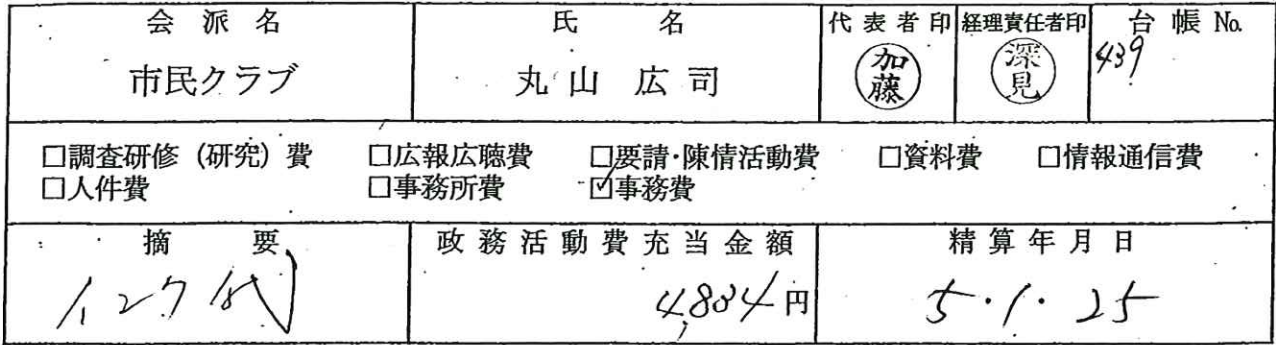 会派名 氏名 代表者印 経理責任者印 台帳No.
市民クラブ 丸山 広司 加藤 深見 439
□調査研修(研究)費 □広報広聴費 □要請・陳情活動費 □資料費 □情報通信費
□人件費 □事務所費 ☑事務費
摘要 政務活動費充当金額 精算年月日
インク代 4,834円 5・1・25